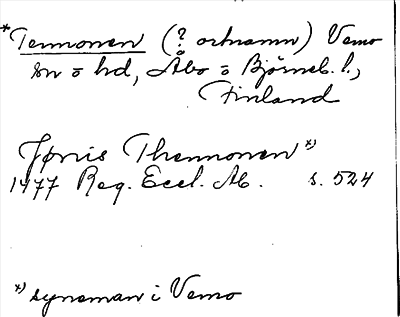 *Tennonen (? ortnamn) Vemo
sn o hd, Åbo o Björneb. l.,
Finland
Jønis Thennonen *)
1477 Reg. Eccl. Ab. s. 524
*) syneman i Vemo